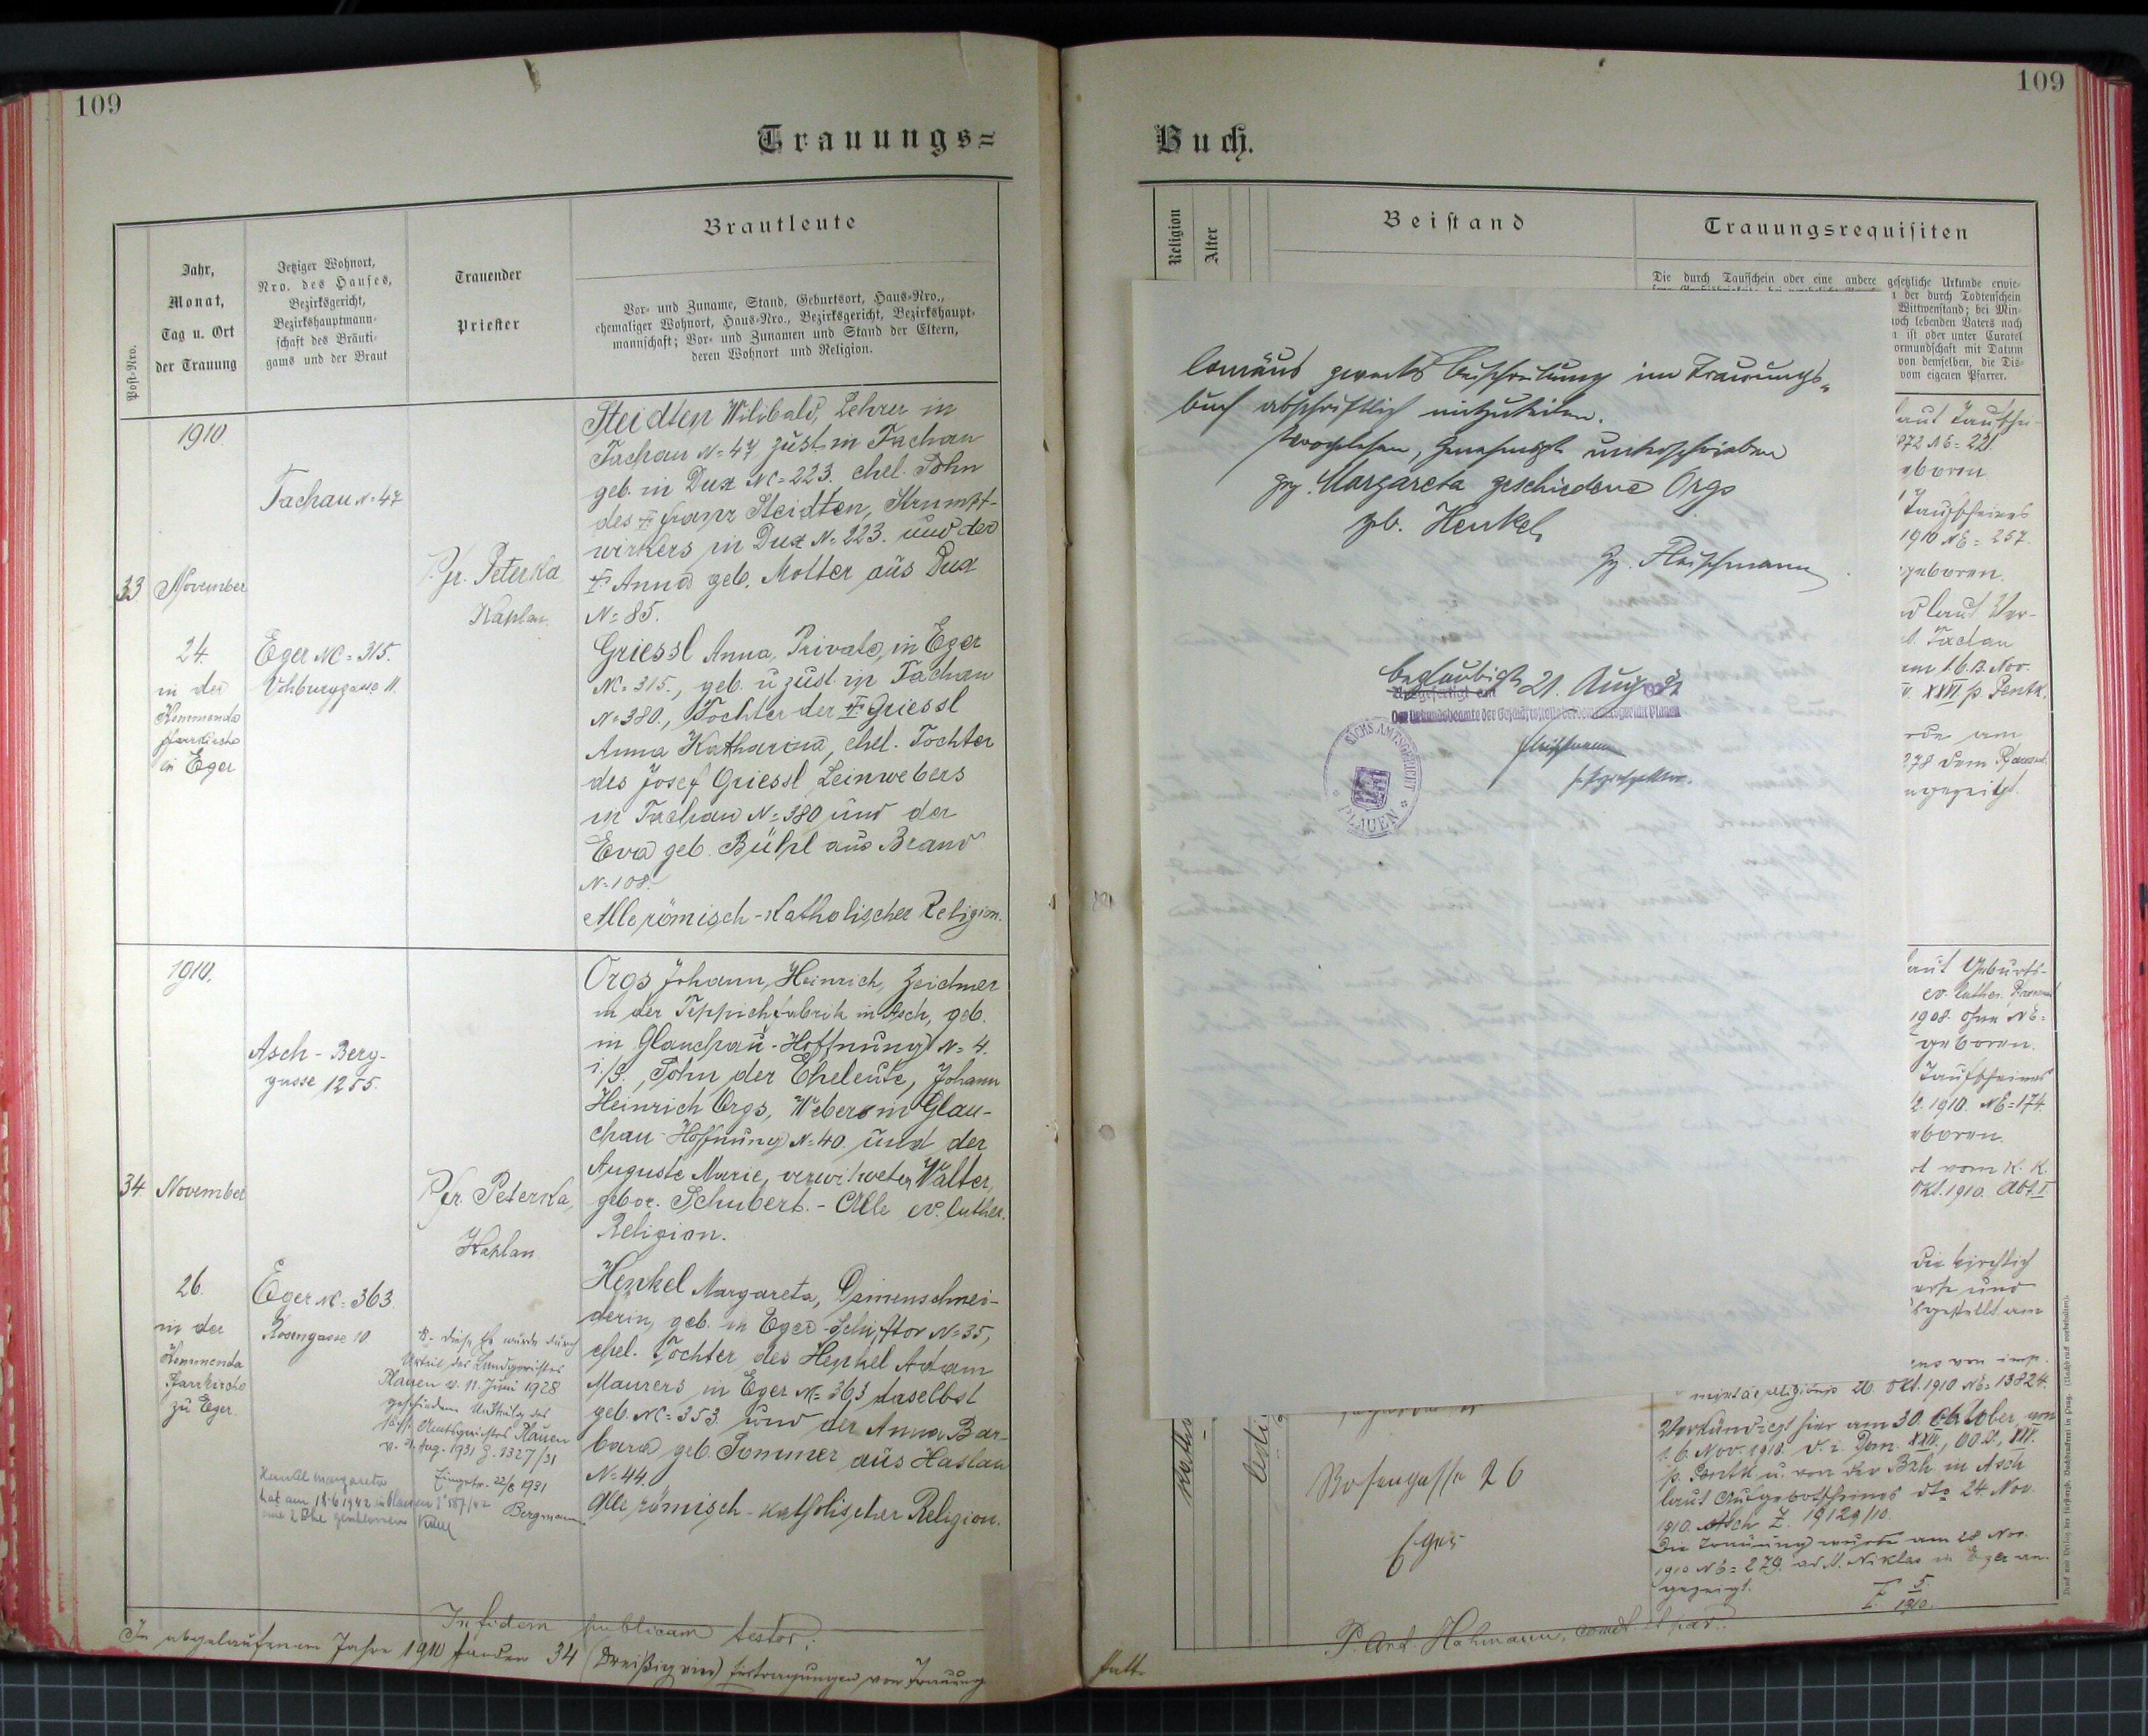 109
Trauungs=
Post-Nro.
Jahr,
Monat,
Tag u. Ort
der Trauung
Jetziger Wohnort,
Nro. des Hauses,
Bezirksgericht,
Bezirkshauptmann-
schaft des Bräuti-
gams und der Braut
Trauender
Priester
Brautleute
Vor- und Zuname, Stand, Geburtsort, Haus-Nro.,
ehemaliger Wohnort, Haus-Nro., Bezirksgericht, Bezirkshaupt-
mannschaft; Vor- und Zunamen und Stand der Eltern,
deren Wohnort und Religion.
1910
33
November
24.
in der
Kommenda
Pfarrkirche
in Eger
Tachau N= 47
Eger NC= 315.
Vohburggasse 11.
Fr. Peterka
Kaplan.
Steidten Wilibald, Lehrer in
Tachau N= 47 zust. in Tachau
geb. in Dux NC= 223. ehel. Sohn
des † Franz Steidten, Strumpf-
wirkers in Dux N= 223. und der
† Anna geb. Molter aus Dux
N= 85.
Griessl Anna, Private, in Eger
NC= 315., geb. u zust. in Tachau
N= 380., Tochter der †. Griessl
Anna Katharina, ehel. Tochter
des Josef Griessl Leinwebers
in Tachau N= 380 und der
Eva geb. Bühl aus Brand
N= 108.
Alle römisch-katholischer Religion.
1910.
34
November
26.
in der
Kommenda
Pfarrkirche
zu Eger.
Asch-Berg-
gasse 1255.
Eger NC= 363.
Rosengasse 10
Fr. Peterka,
Kaplan
Orgs Johann, Heinrich, Zeichner
in der Teppichfabrik in Asch, geb.
in Glauchau-Hoffnung N= 4.
i./S., Sohn der Eheleute, Johann
Heinrich Orgs, Webers in Glau-
chau-Hoffnung N= 40. und der
Auguste Marie, verwitweten Walter,
gebor. Schubert. - Alle ev. luther.
Religion.
Henkel Margareta, Damenschnei-
derin, geb. in Eger-Schifftor N= 35,
ehel. Tochter des Henkel Adam
Maurers in Eger NC= 363 daselbst
geb. NC= 353. und der Anna Bar-
bara geb. Sommer aus Haslau
N= 44.
Alle römisch-katholischer Religion.
diese Ehe wurde durch
Urteil des Landgerichtes
Plauen v. 11. Juni 1928
geschieden
Amtsgerichtes Plauen
v. 21. Aug. 1931 Z. 1327/31
Eingetr. 22/8 1931
Bergmann
Henkel Margareta
hat am 18.6.1942 in Plauen
eine 2 Ehe geschlossen
In fidem publicam testor:
Im abgelaufenen Jahre 1910 fanden 34 (Dreißig vier) Eintragungen von Trauung
109
Buch.
Religion
Alter
Beistand
Trauungsrequisiten
Die durch Taufschein oder eine andere gesetzliche Urkunde erwie-
der durch Todtenschein
Witwenstand; bei Min-
noch lebenden Vaters nach
ist oder unter Curatel
ormundschaft mit Datum
von demselben, die Dis-
vom eigenen Pfarrer.
buch abschriftlich mitzuteilen.
Vorgelesen, genehmigt unterschrieben
gez. Margareta geschiedene Orgs
geb. Henkel
gz. Fleischmann
beglaubigt 21. Aug.
Ausgefertigt am
Der Urkundsbeamte der Geschäftsstelle bei dem Amtsgericht Plauen
Fleischmann
SÄCHS. AMTSGERICHT
PLAUEN
laut Taufschei-
1872 NE= 221.
geboren
Taufscheines
1910 NE= 257.
geboren.
laut Ver-
Tachau
am 1. 6. 13. Nov.
XXVI p. Pentk.
am
278 dem Pfarramt
angezeigt.
laut Geburts-
ev. luther. Pfarramt
1908. ohne NE=
geboren.
Taufscheines
1910. NE= 174.
geboren.
vom K. K.
Okt. 1910. Abt. I.
die kirchlich
und
ausgestellt am
von imp.
mixtae religionis 26. Okt. 1910 NE= 13824.
Verkündiget hier am 30. Oktober, von
1. 6. Nov. 1910. d. i. Dom. XXIV., OO.SS., XXV.
p. Pentk. u. von der Bzh. in Asch
laut Aufgebotscheines dto 24. Nov.
1910. Asch Z. 19129/10.
Die Trauung wurde am 28 Nov.
1910 NE= 279. ad St. Niklas in Eger an-
gezeigt.
5.
1910.
Kathol.
ledig
Rosengasse 26
Eger
P. Ant. Hahmann,
statt.
Druck und Verlag der fürsterzb. Buchdruckerei in Prag. (Nachdruck vorbehalten).